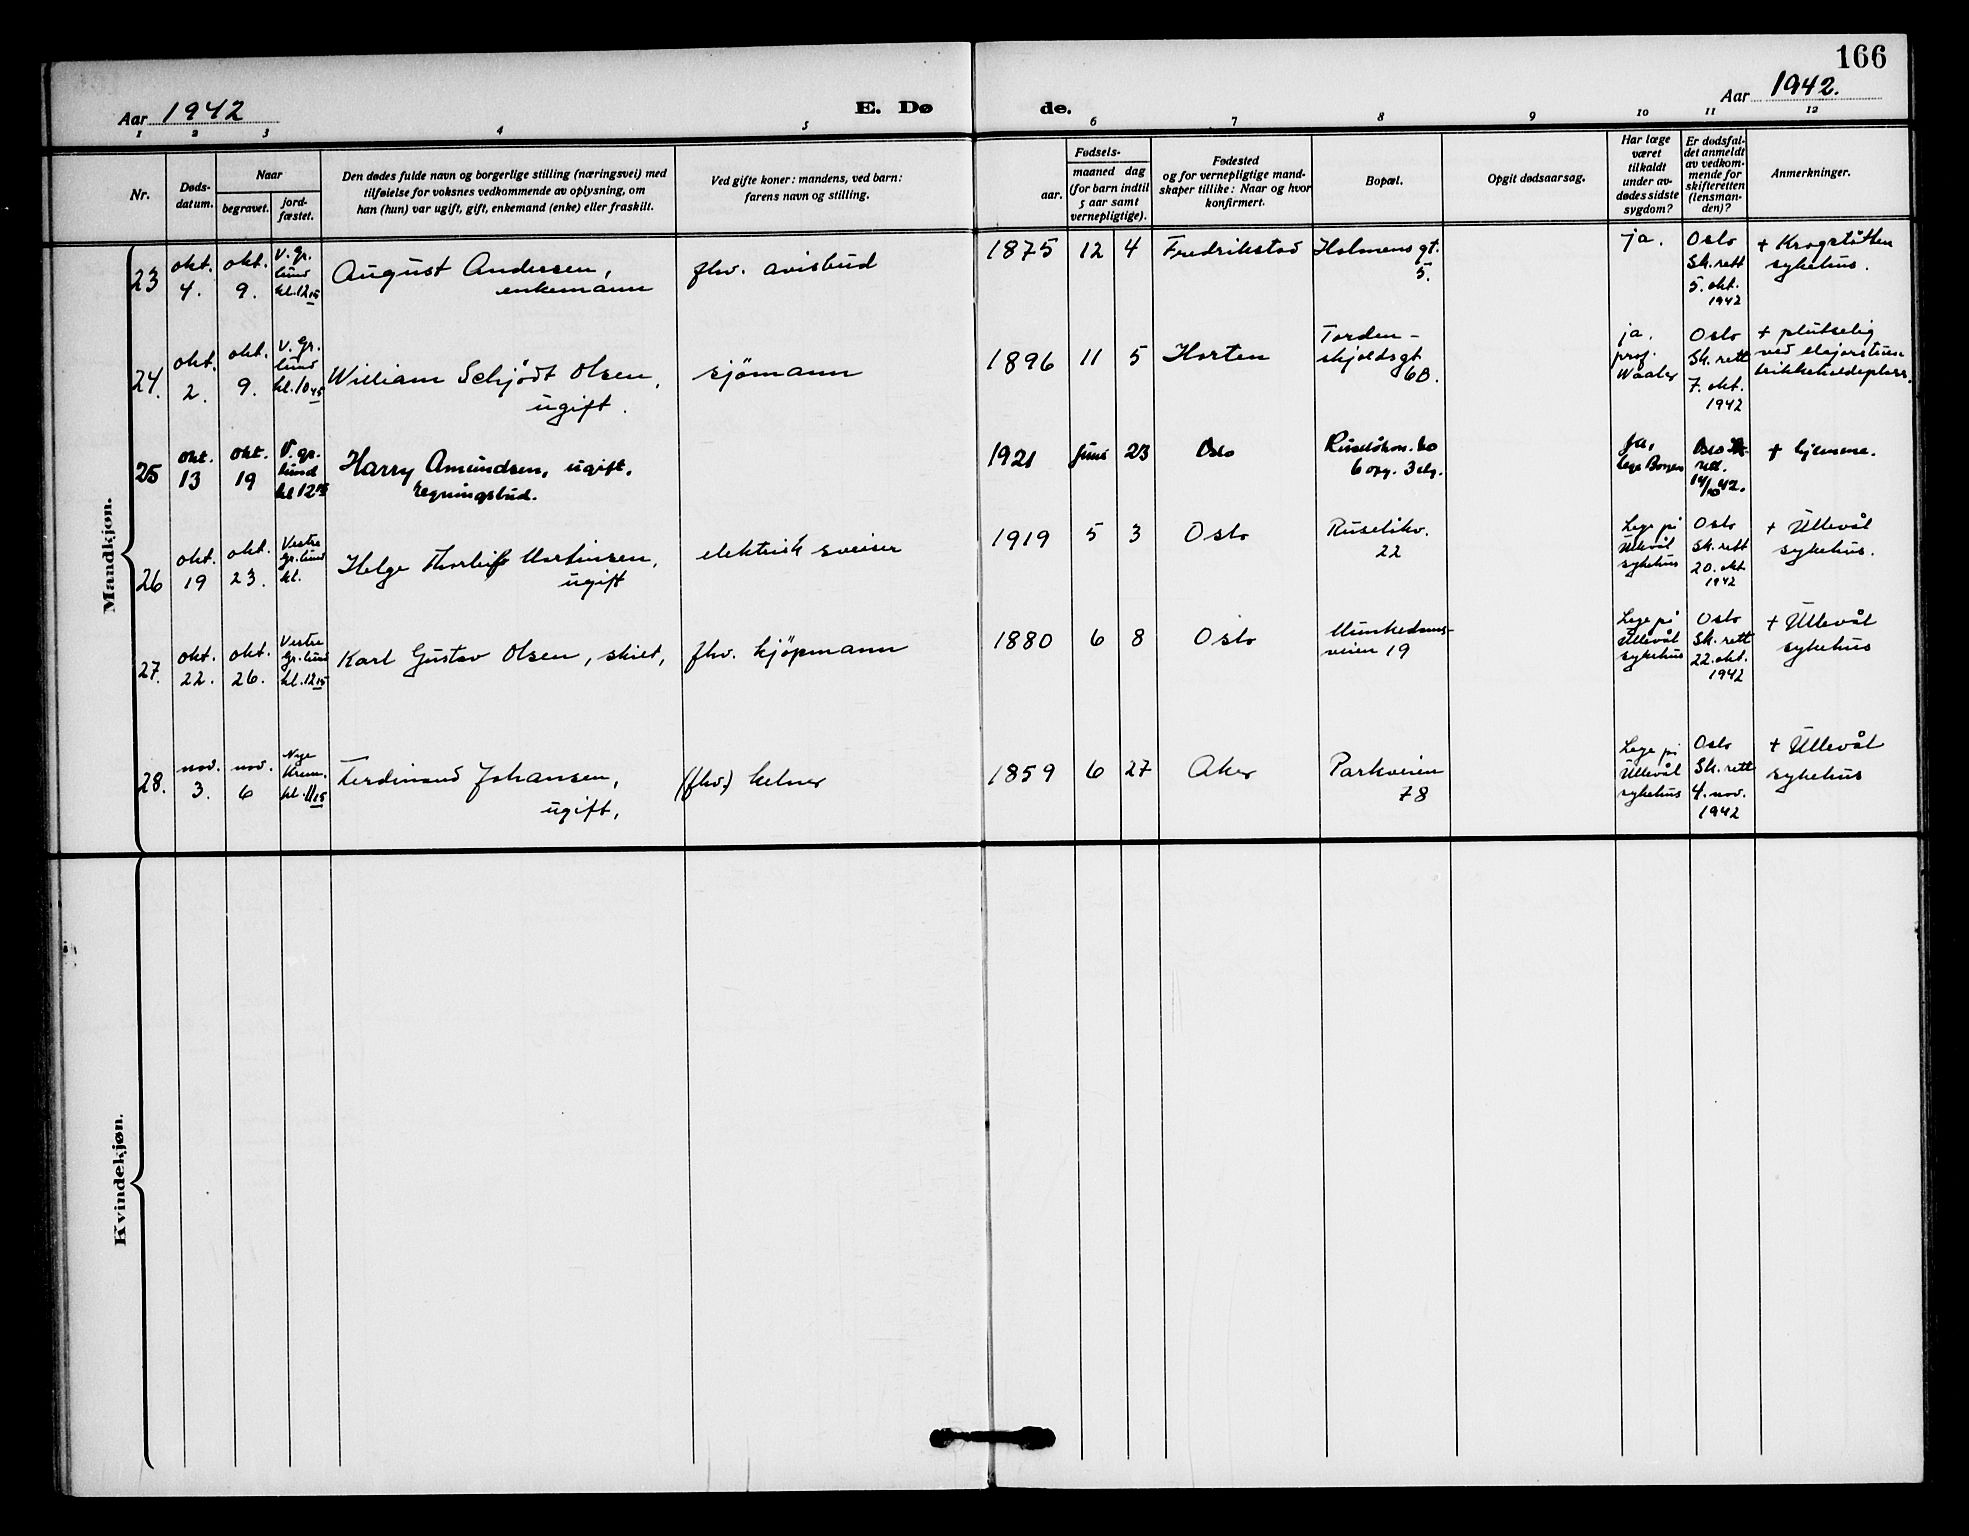 166
Aar 1942
E. Dø de.
Aar 1942.
1 2 3 4 5 6 7 8 9 10 11 12
Nr.
Døds-
datum.
Naar
begravet.
jord-
fæstet.
Den dødes fulde navn og borgerlige stilling (næringsvei) med
tilføielse for voksnes vedkommende av oplysning, om
han (hun) var ugift, gift, enkemand (enke) eller fraskilt.
Ved gifte koner: mandens, ved barn:
farens navn og stilling.
Fødsels-
aar.
maaned dag
(for barn indtil
5 aar samt
vernepligtige).
Fødested
og for vernepligtige mand-
skaper tillike: Naar og hvor
konfirmert.
Bopæl.
Opgit dødsaarsag.
Har læge
været
tilkaldt
under av-
dødes sidste
sygdom?
Er dødsfal-
det anmeldt
av vedkom-
mende for
skifteretten
(lensman-
den)?
Anmerkninger.
Mandkjøn.
23
okt.
4.
okt.
9.
V. Gr.
lund
kl. 12 15
August Andersen,
enkemann
fhv. avisbud
1875 12 4
Fredrikstad
Holmens gt.
5.
ja.
Oslo
Sk. rett
5. okt.
1942
+ Krogstøtten
sykehus.
24.
okt.
2.
okt.
9.
V. Gr.
lund
kl. 10 45
William Schjödt Olsen,
ugift.
sjömann
1896 11 5
Horten
Torden-
skjoldsgt
6B.
ja.
prof.
Waaler
Oslo
Sk. rett
7. okt.
1942
+ plutselig
ved Majorstuen
trikkeholdeplass.
25
okt.
13
okt.
19
V. gr.
lund
kl 12 15
Harry Amundsen, ugift,
regningsbud.
1921 juni 23
Oslo
6 opg. 3 etg.
ja,
lege
Oslo
14/10 42.
+ hjemme.
26
okt.
19
okt.
23.
Vestre
Gr. lund
kl.
Helge Thorleif Martinsen,
ugift
elektrisk sveiser
1919 5 3
Oslo
Ruselökv.
22
Lege på
Ullevål
sykehus
Oslo
Sk. rett
20. okt
1942
+ Ullevål
sykehus.
27.
okt.
22.
okt.
26.
Vestre
Gr. lund
kl. 12 15
Karl Gustav Olsen, skilt,
fhv. kjöpmann
1880 6 8
Oslo
Munkedams-
veien 19
Lege på
Ullevål
sykehus
Oslo
Sk. rett
22. okt.
1942
+ Ullevål
sykehus
28.
nov.
3.
nov.
6
Nye
Krem.
kl. 11 15
Ferdinand Johansen,
ugift,
(fhv.) kelner
1859 6 27
Aker
Parkveien
78
Lege på
Ullevål
sykehus
Oslo
Sk. rett
4. nov.
1942
+ Ullevål
sykehus
Kvindekjøn.